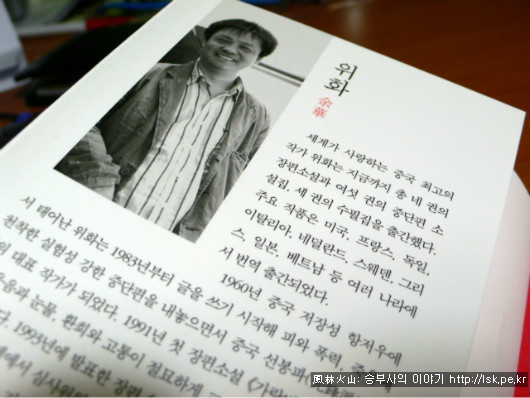 위화
余華
세계가 사랑하는 중국 최고의
작가 위화는 지금까지 총 네 권의
장편소설과 여섯 권의 중단편 소
설집, 세 권의 수필집을 출간했다.
주요 작품은 미국, 프랑스, 독일,
이탈리아, 네덜란드, 스웨덴, 그리
스, 일본, 베트남 등 여러 나라에
서 번역 출간되었다.
1960년 중국 저장성 항저우에
서 태어난 위화는 1983년부터 글을 쓰기 시작해 피와 폭력,
천착한 실험성 강한 중단편을 내놓으면서 중국 선봉파
대표 작가가 되었다. 1991년 첫 장편소설
눈물, 환희와 고통이 절묘하게
1993년에 발표한 장편
風林火山: 승부사의 이야기 http://lsk.pe.kr